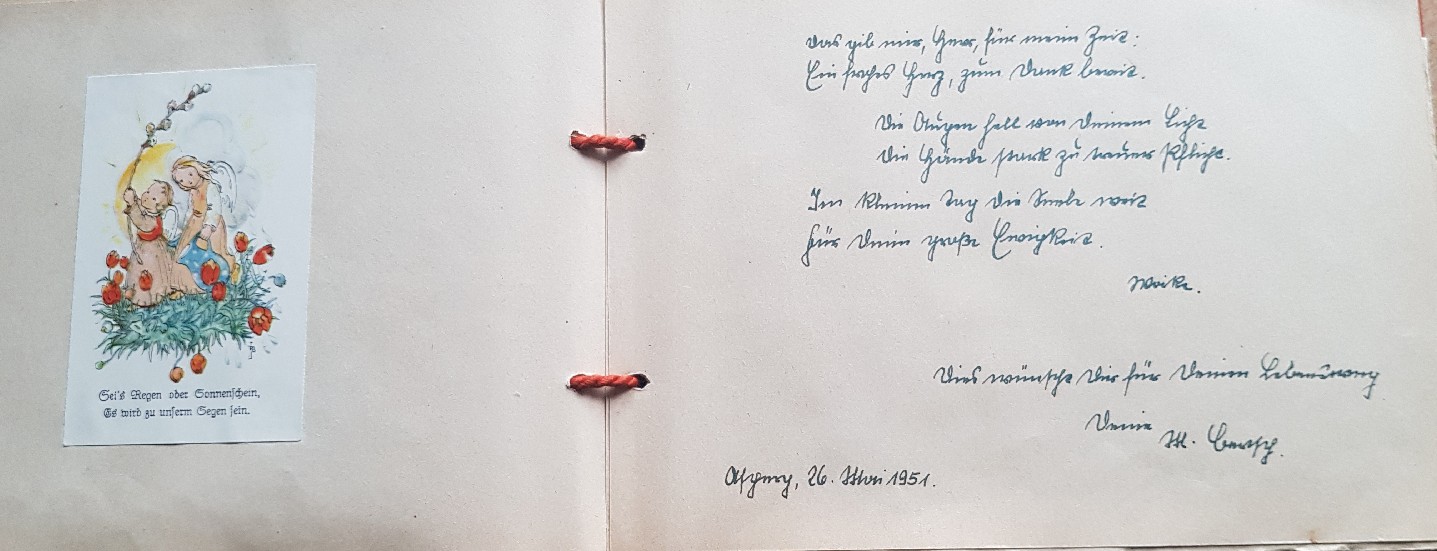 Sei's Regen oder Sonnenschein,
Es wird zu unserm Segen sein.
Das gib mir, Herr, für meine Zeit:
Ein frohes Herz, zum Dank bereit.
Die Augen hell von Deinem Licht
Die Hände stark zu treuer Pflicht.
Im kleinen Tag die Seele weit
Für Deine große Ewigkeit.
Dies wünscht Dir für Deinen Lebensweg
Deine
M. Bertsch.
Asperg, 26. Mai 1951.